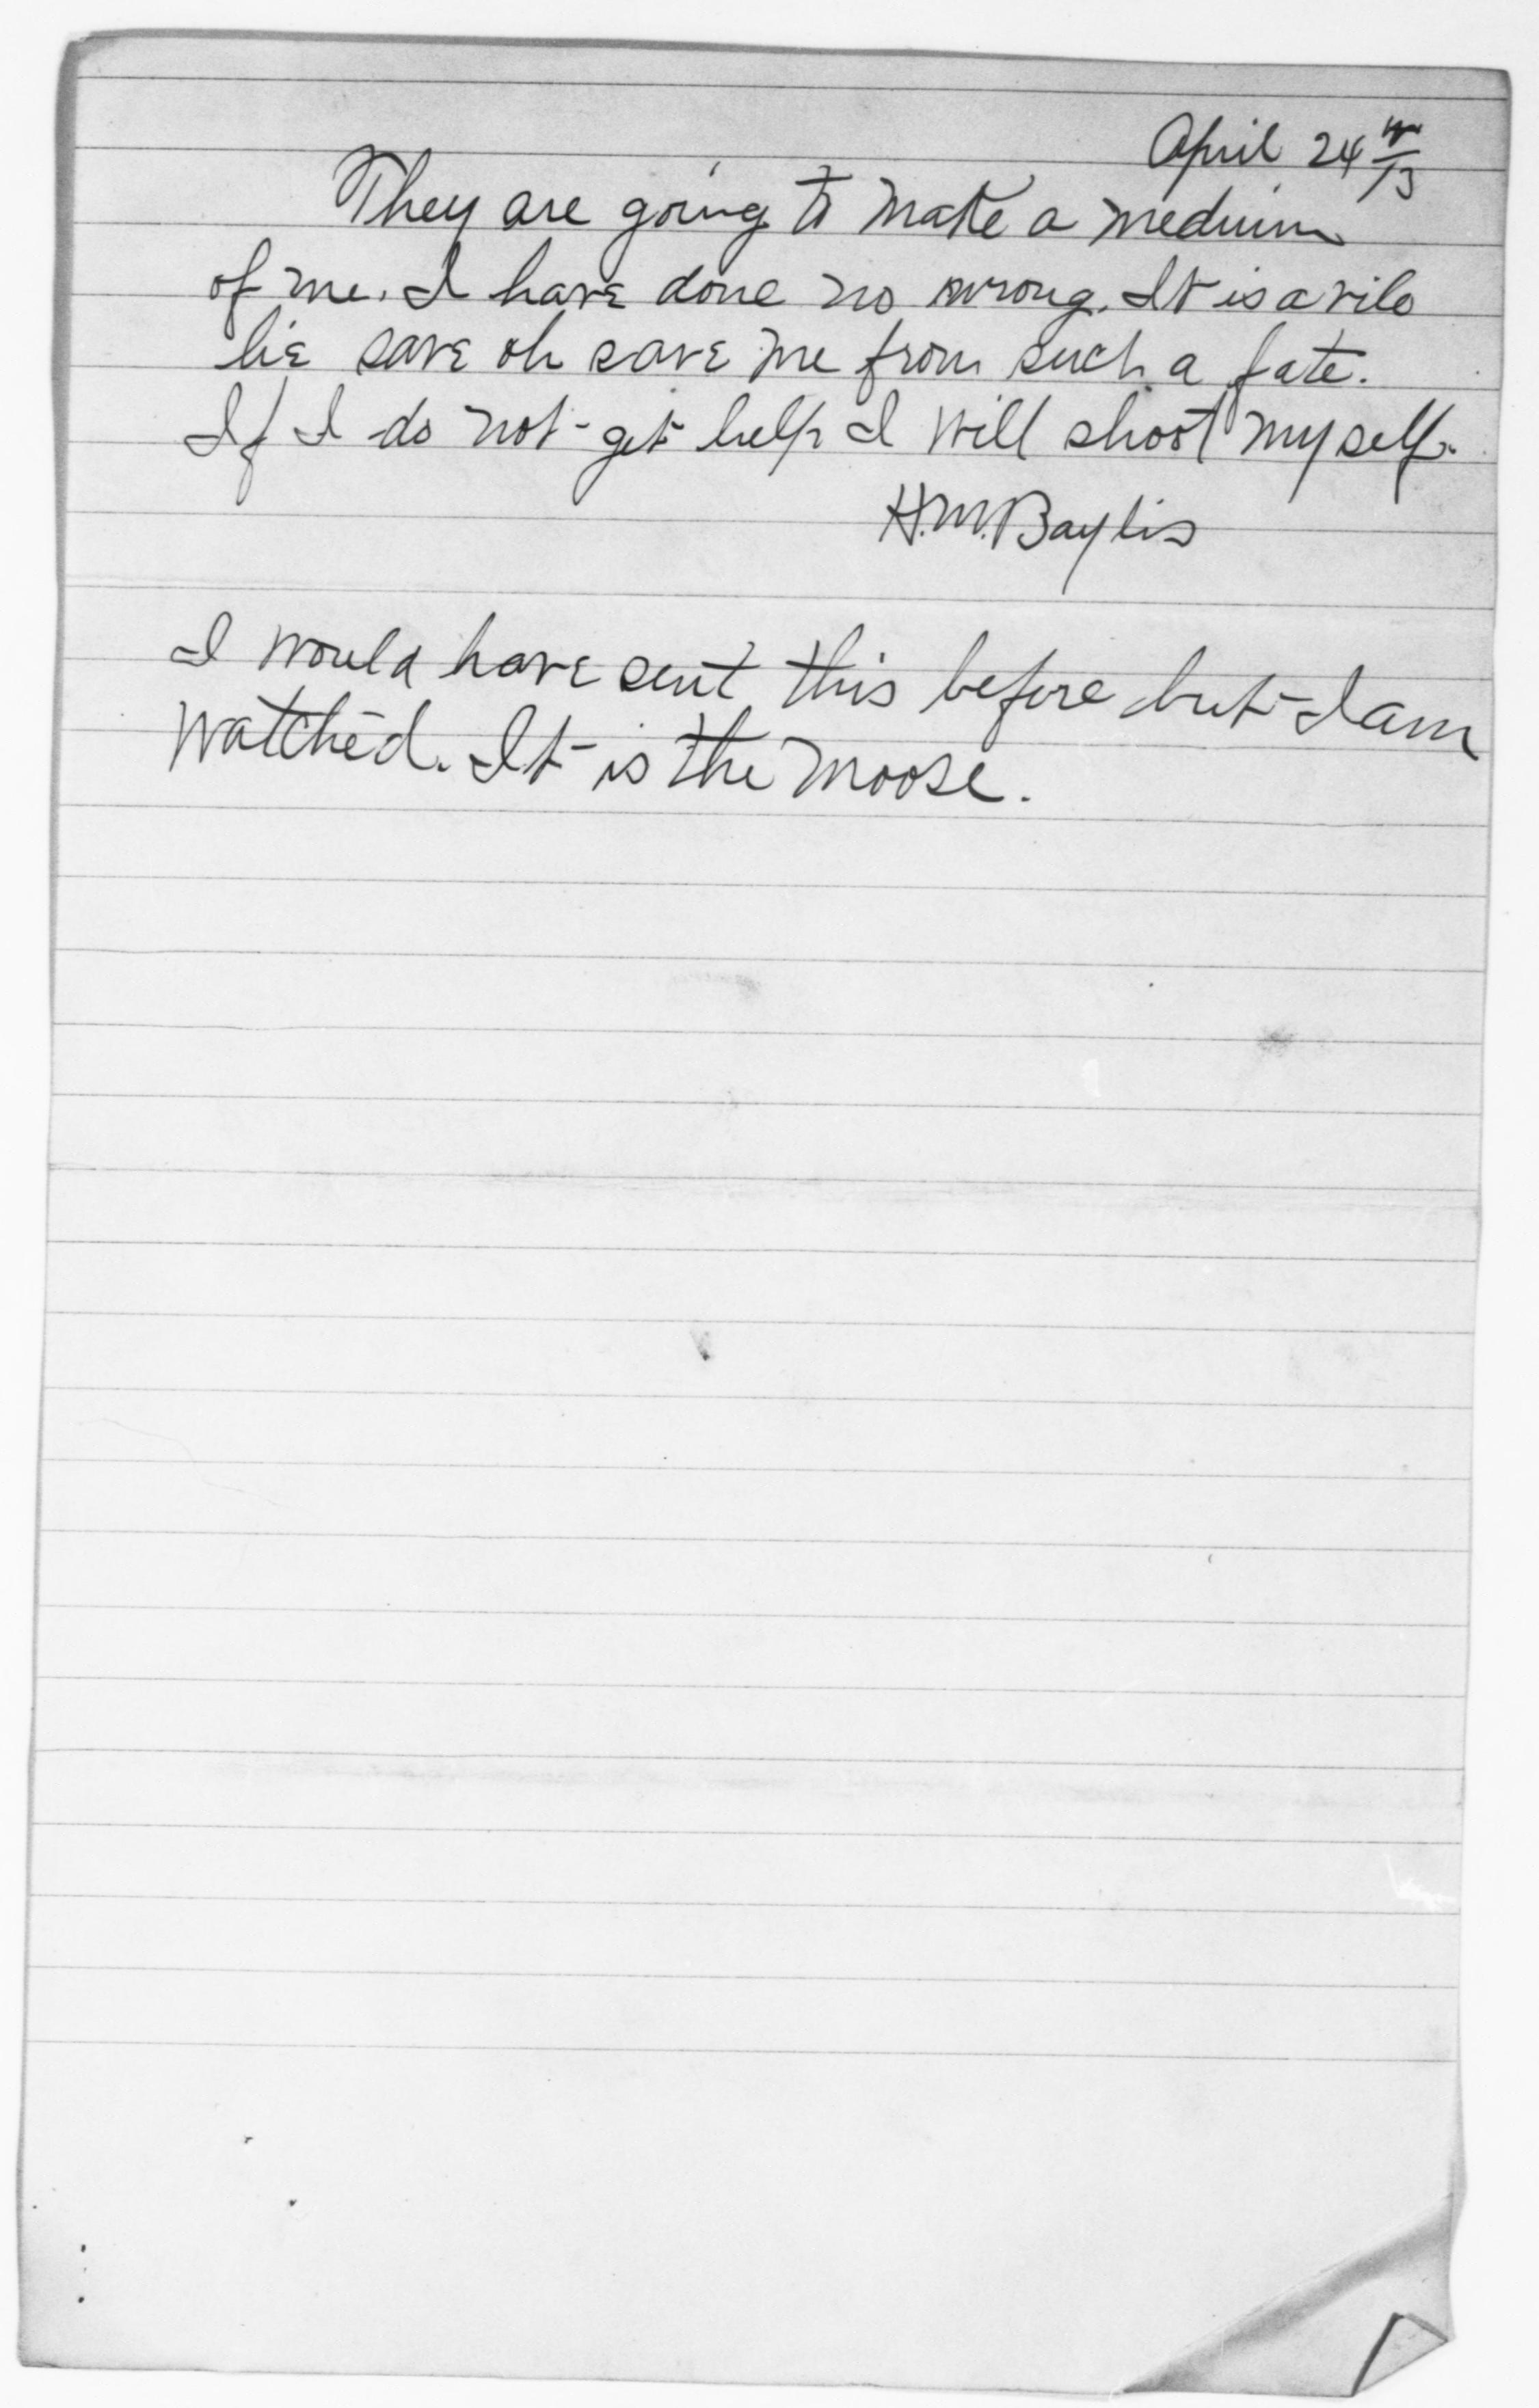 April 24th/13
They are going to make a medium
of me. I have done no wrong. It is a vile
lie save oh save me from such a fate.
If I do not get help I will shoot myself.
H.M. Baylis
I would have sent this before but I am
watched. It is the Moose.